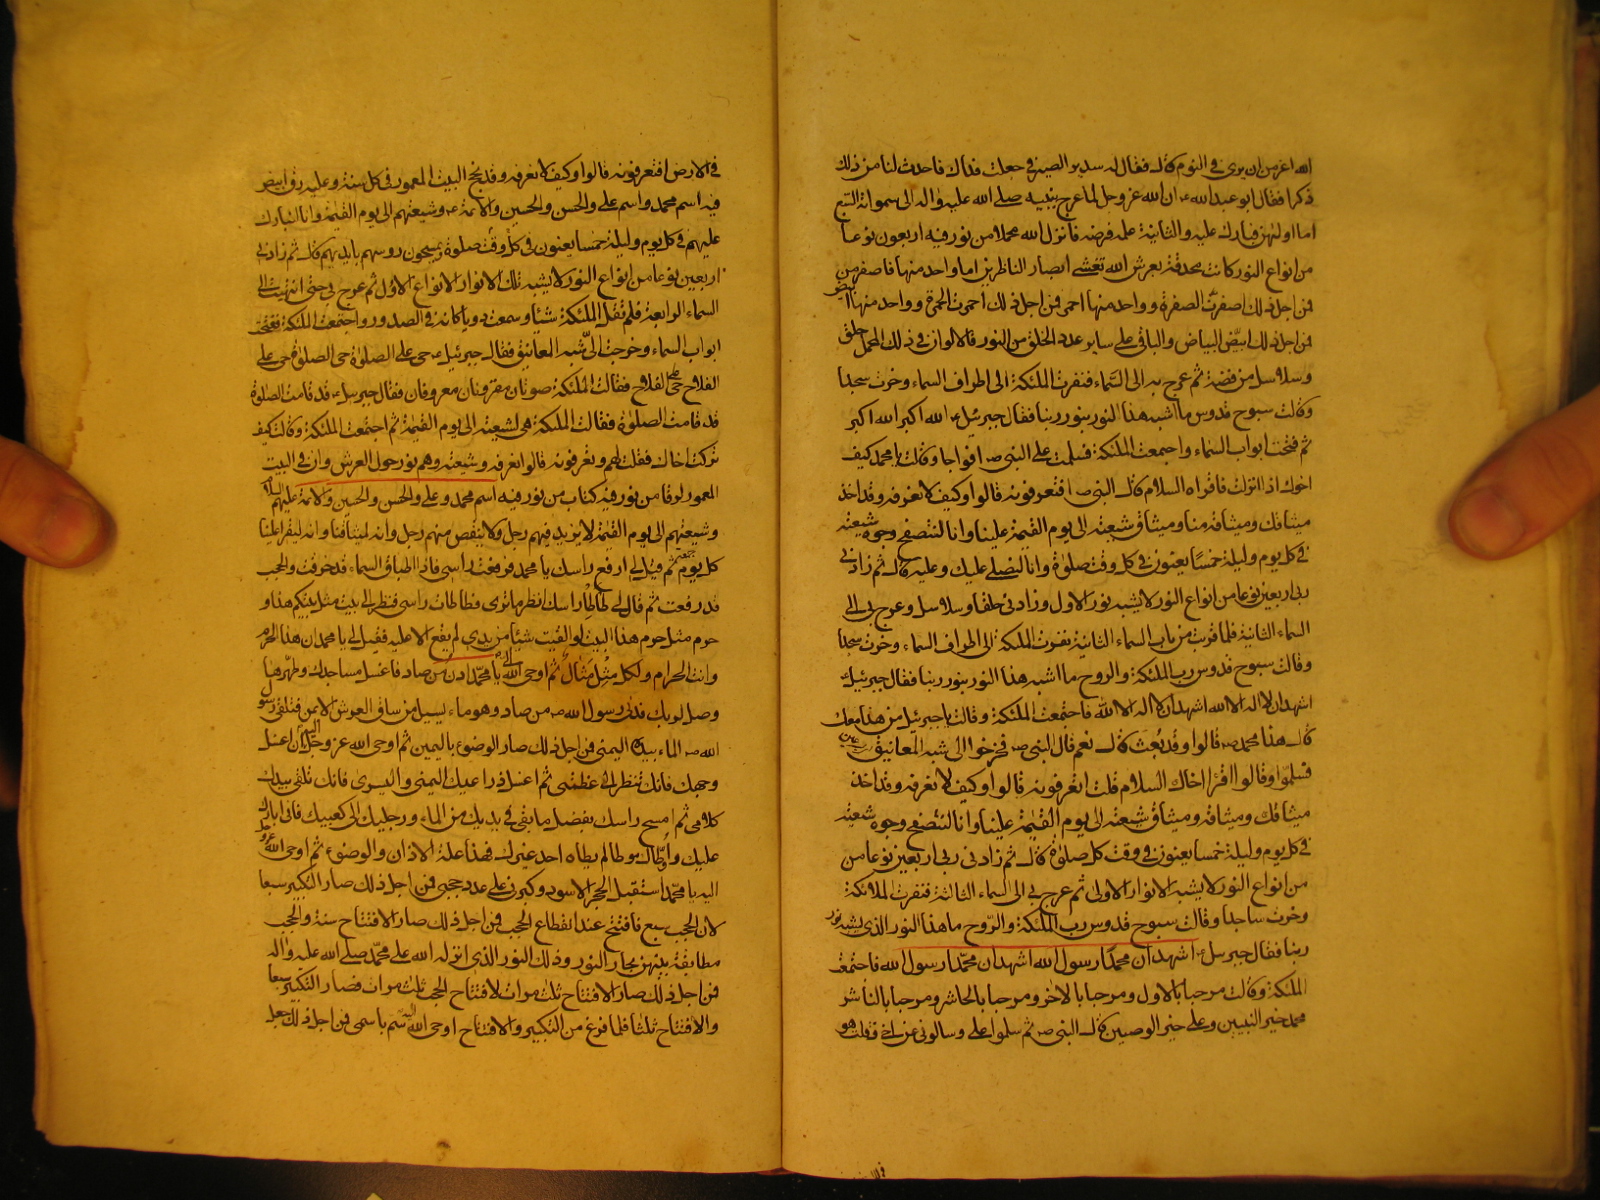 الله اعز من ان يرى في النوم قال فقال له سدير الصيرفي جعلت فداك فاحدث لنا من ذلك
ذكرا فقال ابو عبد الله ع ان الله عز وجل لما عرج بنبيه صلى الله عليه واله الى سمواته السبع
اما اولهن فبارك عليه والثانية علمه فرضه فانزل الله محملا من نور فيه اربعون نوعا
من انواع النور كانت محدقة بعرش الله تغشى ابصار الناظرين اما واحد منها فاصفر فمن
فمن اجل ذلك اصفرت الصفرة وواحد منها احمر فمن اجل ذلك احمرت الحمرة وواحد منها ابيض
فمن اجل ذلك ابيض البياض والباقي على ساير عدد الخلق من النور فالالوان في ذلك المحمل حلق
وسلاسل من فضة ثم عرج به الى السماء فنفرت الملئكة الى اطراف السماء وخرت سجدا
وقالت سبوح قدوس ما اشبه هذا النور بنور ربنا فقال جبرئيل ع الله اكبر الله اكبر
ثم فتحت ابواب السماء واجتمعت الملئكة فسلمت على النبي ص افواجا وقالت يا محمد كيف
اخوك اذا نزلت فاقراه السلام قال النبي ص افتعرفونه قالوا وكيف لا نعرفه وقد اخذ
ميثاقك وميثاقه منا وميثاق شيعته الى يوم القيمة علينا وانا لنتصفح وجوه شيعته
في كل يوم وليلة خمسا يعنون في كل وقت صلوة وانا لنصلي عليك وعليه قال ثم زادني
ربي اربعين نوعا من انواع النور لا يشبه نور الاول وزادني حلقا وسلاسل وعرج بي الى
السماء الثانية فلما قربت من باب السماء الثانية نفرت الملئكة الى اطراف السماء وخرت سجدا
وقالت سبوح قدوس رب الملئكة والروح ما اشبه هذا النور بنور ربنا فقال جبرئيل ع
اشهد ان لا اله الا الله اشهد ان لا اله الا الله فاجتمعت الملئكة وقالت يا جبرئيل من هذا معك
قال هذا محمد ص قالوا وقد بعث قال نعم قال النبي ص فخرجوا الى شبه المعانيق
فسلموا وقالوا اقرأ اخاك السلام قلت اتعرفونه قالوا وكيف لا نعرفه وقد اخذ
ميثاقك وميثاقه وميثاق شيعته الى يوم القيمة علينا وانا لنتصفح وجوه شيعته
في كل يوم وليلة خمسا يعنون في وقت كل صلوة قال ثم زادني ربي اربعين نوعا من
من انواع النور لا يشبه الانوار الاولى ثم عرج بي الى السماء الثالثة فنفرت الملائكة
وخرت ساجدا وقالت سبوح قدوس رب الملئكة والروح ما هذا النور الذي يشبه نور
ربنا فقال جبرئيل ع اشهد ان محمدا رسول الله اشهد ان محمدا رسول الله فاجتمعت
الملئكة وقالت مرحبا بالاول ومرحبا بالاخر ومرحبا بالحاشر ومرحبا بالناشر
محمد خير النبيين وعلي خير الوصيين قال النبي ص ثم سلموا علي وسالوني عن اخي فقلت هو
في الارض افتعرفونه قالوا وكيف لا نعرفه وقد نحج البيت المعمور في كل سنة وعليه رق ابيض
فيه اسم محمد واسم علي والحسن والحسين والائمة ع وشيعتهم الى يوم القيمة وانا لنبارك
عليهم في كل يوم وليلة خمسا يعنون في كل وقت صلوة ويمسحون روسهم بايديهم قال ثم زادني
اربعين نوعا من انواع النور لا يشبه تلك الانوار الانواع الاول ثم عرج بي حتى انتهيت الى
السماء الرابعة فلم تقل الملئكة شيئا وسمعت دويا كانه في الصدور واجتمعت الملئكة ففتحت
ابواب السماء وخرجت الى شبه المعانيق فقال جبرئيل ع حي على الصلوة حي الصلوة حي على
الفلاح حي على الفلاح فقالت الملئكة صوتان مقرونان معروفان فقال جبرئيل ع قد قامت الصلوة
قد قامت الصلوة فقالت الملئكة هي لشيعته الى يوم القيمة ثم اجتمعت الملئكة وقالت كيف
تركت اخاك فقلت لهم وتعرفونه قالوا نعرفه وشيعته وهم نور حول العرش وان في البيت
المعمور لرقا من نور فيه كتاب من نور فيه اسم محمد وعلي والحسن والحسين والائمة عليهم السلام
وشيعتهم الى يوم القيمة لا يزيد فيهم رجل ولا ينقص منهم رجل وانه لميثاقنا وانه ليقرا علينا
كل يوم جمعة ثم قيل لي ارفع راسك يا محمد فرفعت راسي فاذا اطباق السماء قد خرقت والحجب
قد رفعت ثم قال لي طأطأ راسك انظر ما ترى فطأطأت راسي فنظرت الى بيت مثل بيتكم هذا و
حرم مثل حرم هذا البيت لو القيت شيئا من يدي لم يقع الا عليه فقيل لي يا محمد ان هذا الحرم
وانت الحرام ولكل مثل مثال ثم اوحى الله الي يا محمد ادن من صاد فاغسل مساجدك وطهرها
وصل لربك فدنى رسول الله ص من صاد وهو ماء يسيل من ساق العرش الايمن فتلقى رسول
الله ص الماء بيده اليمنى فمن اجل ذلك صار الوضوء باليمين ثم اوحى الله عز وجل اليه ان اغسل
وجهك فانك تنظر الى عظمتي ثم اغسل ذراعيك اليمنى واليسرى فانك تلقى بيدك
كلامي ثم امسح راسك بفضل ما بقي في يديك من الماء ورجليك الى كعبيك فاني ابارك
عليك وأوطأك موطأ لم يطاه احد غيرك فهذا علة الاذان والوضوء ثم اوحى الله عز وجل
اليه يا محمد استقبل الحجر الاسود وكبرني على عدد حجبي فمن اجل ذلك صار التكبير سبعا
لان الحجب سبع فافتتح عند انقطاع الحجب فمن اجل ذلك صار الافتتاح سنة والحجب
مطابقة بينهن بحار النور وذلك النور الذي انزله الله على محمد صلى الله عليه واله
فمن اجل ذلك صار الافتتاح ثلث مرات لافتتاح الحجب ثلث مرات فصار التكبير سبعا
والافتتاح ثلثا فلما فرغ من التكبير والافتتاح اوحى الله اليه سم باسمي فمن اجل ذلك جعل